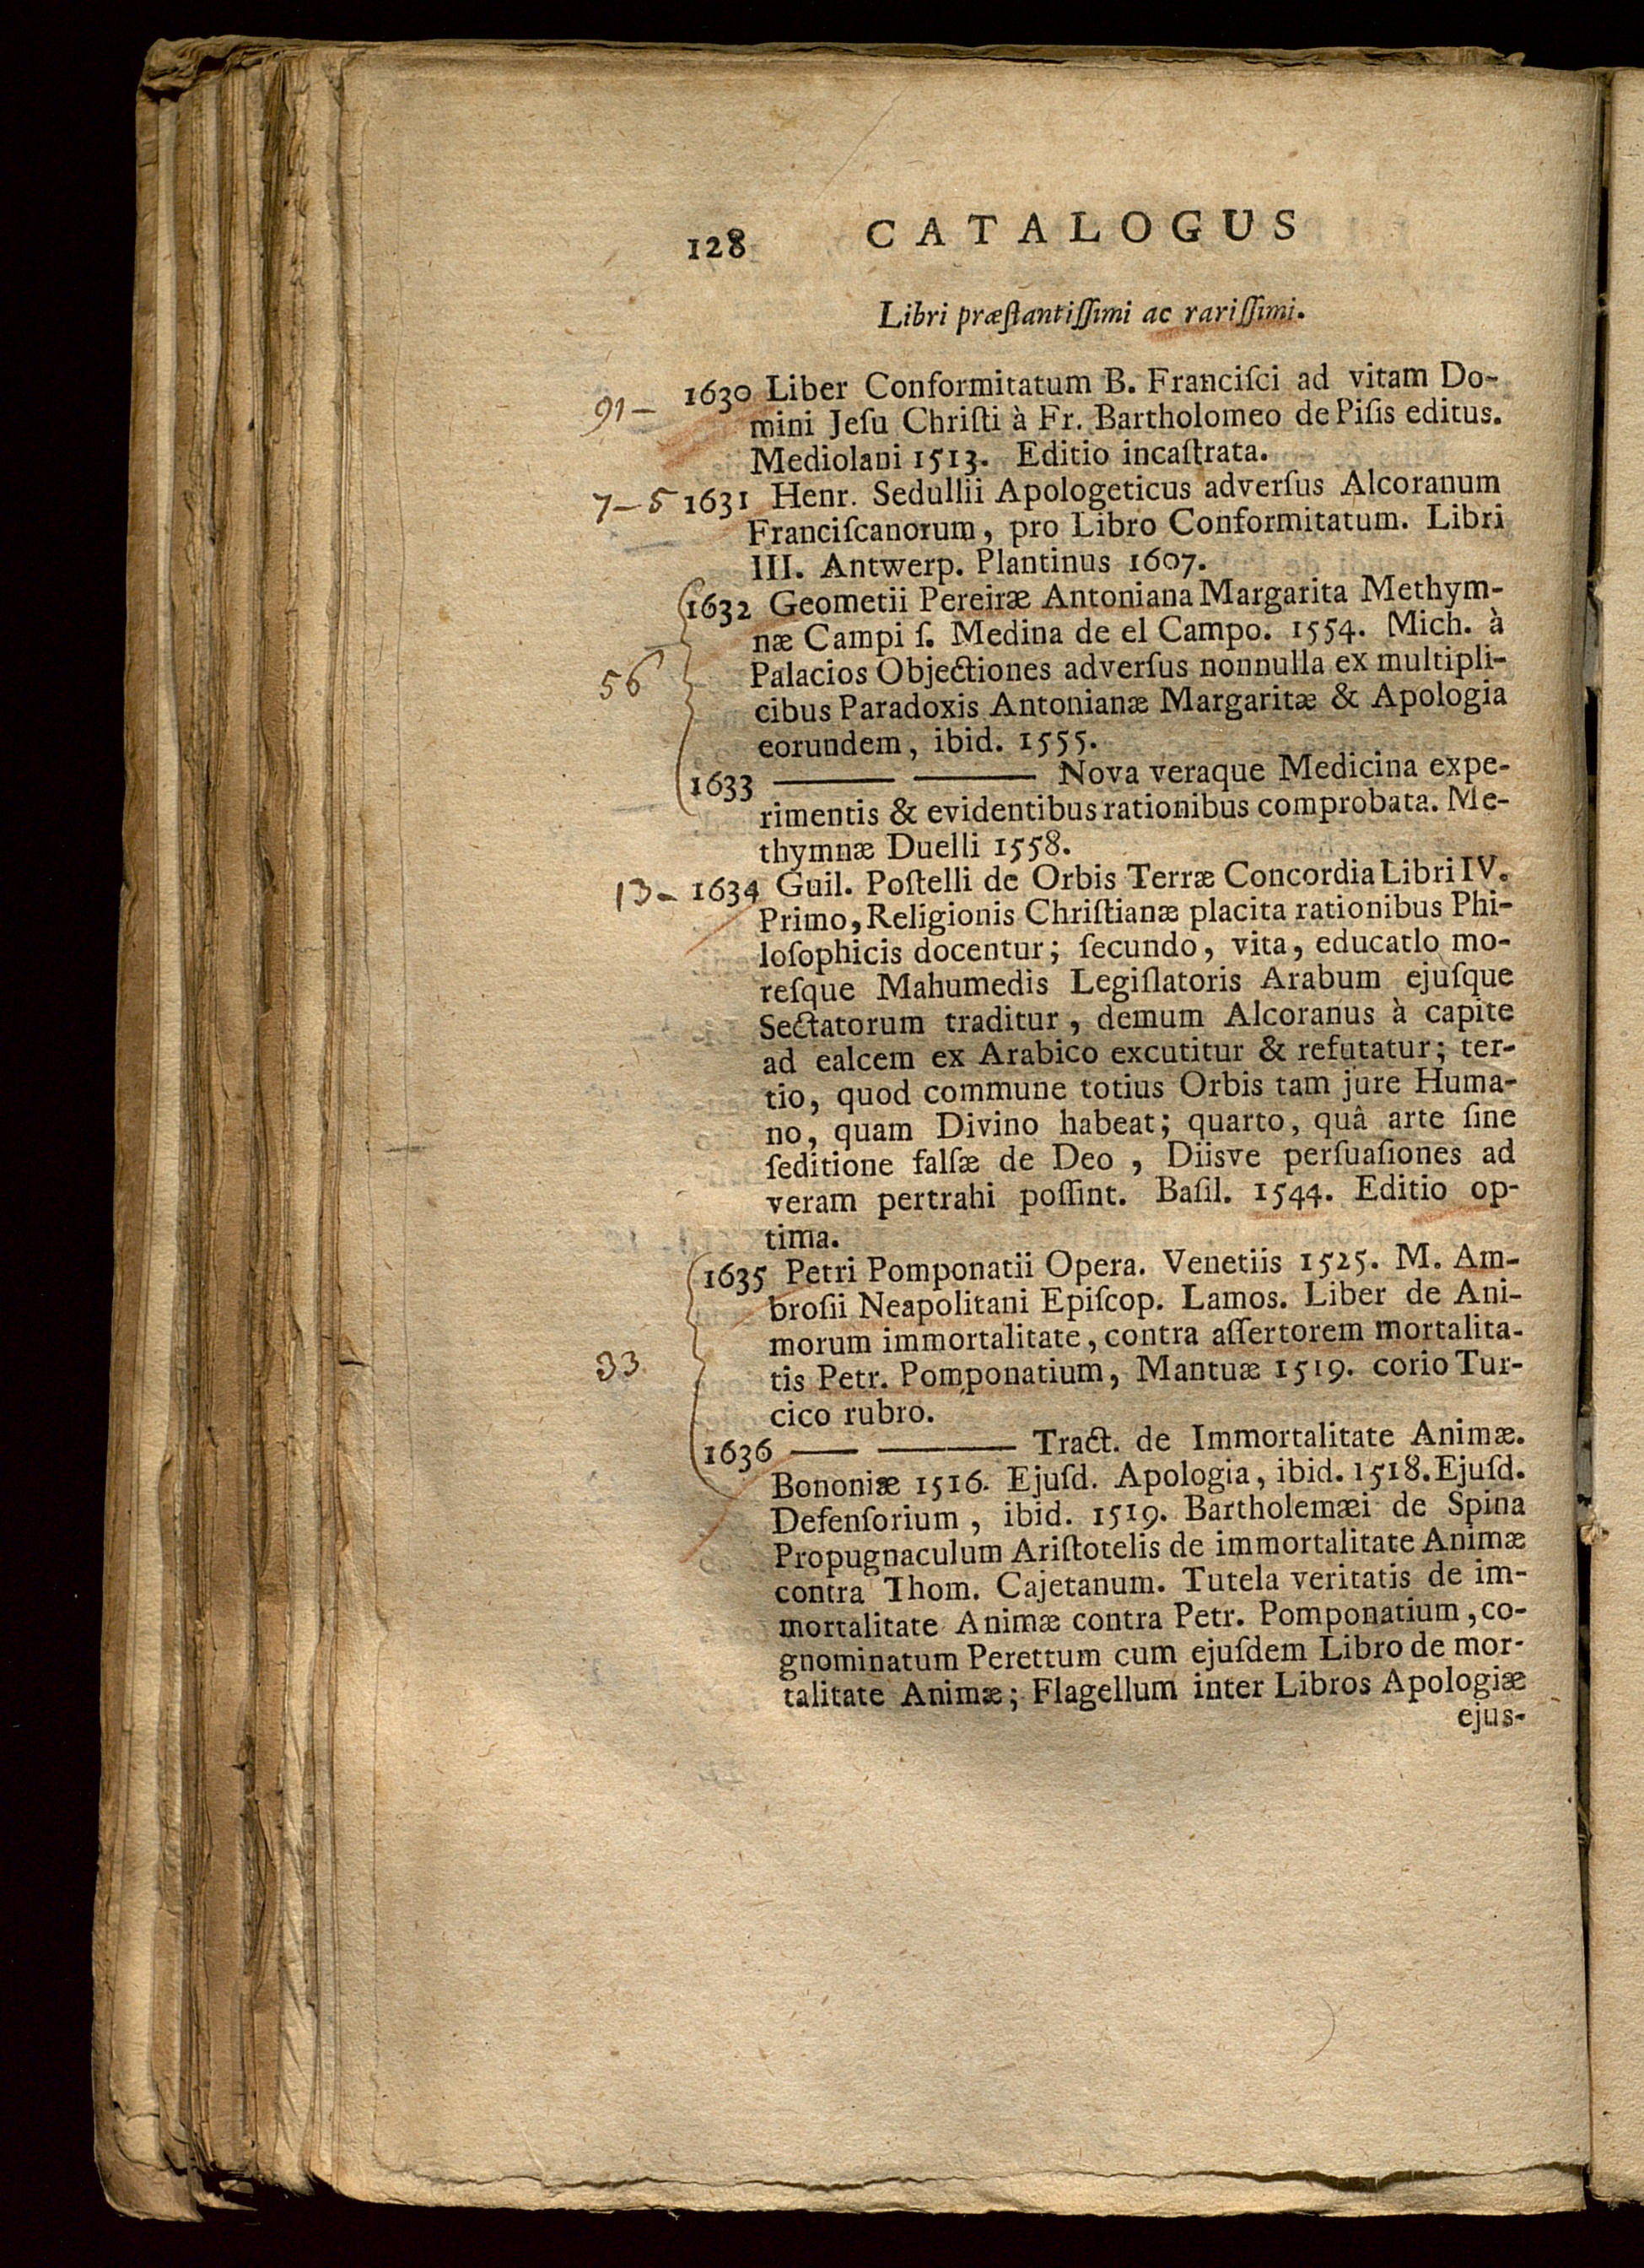 128 CATALOGUS
Libri præſtantiſſimi ac rariſſimi.
91 – 1630 Liber Conformitatum B. Franciſci ad vitam Do-
mini Jeſu Chriſti à Fr. Bartholomeo de Piſis editus.
Mediolani 1513. Editio incaſtrata.
7 – 5 1631 Henr. Sedullii Apologeticus adverſus Alcoranum
Franciſcanorum, pro Libro Conformitatum. Libri
III. Antwerp. Plantinus 1607.
1632 Geometii Pereiræ Antoniana Margarita Methym-
næ Campi ſ. Medina de el Campo. 1554. Mich. à
56 Palacios Objectiones adverſus nonnulla ex multipli-
cibus Paradoxis Antonianæ Margaritæ & Apologia
eorundem, ibid. 1555.
1633 ——— ——— Nova veraque Medicina expe-
rimentis & evidentibus rationibus comprobata. Me-
thymnæ Duelli 1558.
13 – 1634 Guil. Poſtelli de Orbis Terræ Concordia Libri IV.
Primo, Religionis Chriſtianæ placita rationibus Phi-
loſophicis docentur; ſecundo, vita, educatlo mo-
reſque Mahumedis Legiſlatoris Arabum ejuſque
Sectatorum traditur, demum Alcoranus à capite
ad ealcem ex Arabico excutitur & refutatur; ter-
tio, quod commune totius Orbis tam jure Huma-
no, quam Divino habeat; quarto, quâ arte ſine
ſeditione falſæ de Deo, Diisve perſuaſiones ad
veram pertrahi poſſint. Baſil. 1544. Editio op-
tima.
1635 Petri Pomponatii Opera. Venetiis 1525. M. Am-
broſii Neapolitani Epiſcop. Lamos. Liber de Ani-
morum immortalitate, contra aſſertorem mortalita-
33 tis Petr. Pomponatium, Mantuæ 1519. corio Tur-
cico rubro.
1636 —— ——— Tract. de Immortalitate Animæ.
Bononiæ 1516. Ejuſd. Apologia, ibid. 1518. Ejuſd.
Defenſorium, ibid. 1519. Bartholemæi de Spina
Propugnaculum Ariſtotelis de immortalitate Animæ
contra Thom. Cajetanum. Tutela veritatis de im-
mortalitate Animæ contra Petr. Pomponatium, co-
gnominatum Perettum cum ejuſdem Libro de mor-
talitate Animæ; Flagellum inter Libros Apologiæ
ejus-